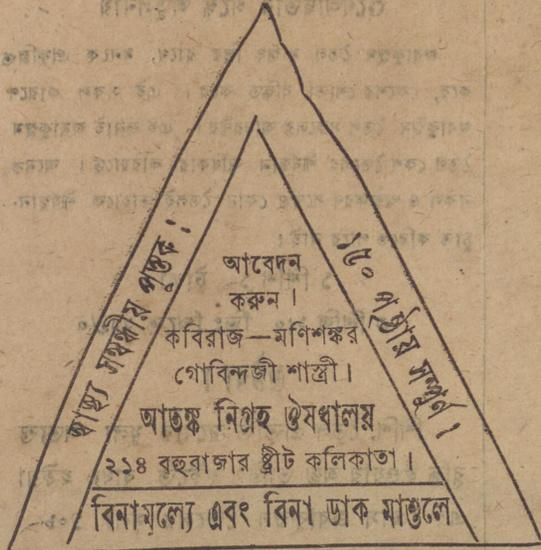 স্বাস্থ্য সম্বন্ধীয় পুস্তক !
পৃষ্ঠায় সম্পূর্ণ !
আবেদন
করুন ।
কবিরাজ—মণিশঙ্কর
গোবিন্দজী শাস্ত্রী ।
আতঙ্ক নিগ্রহ ঔষধালয়
২১৪ বহুবাজার ষ্ট্রীট কলিকাতা ।
বিনামূল্যে এবং বিনা ডাক মাশুলে